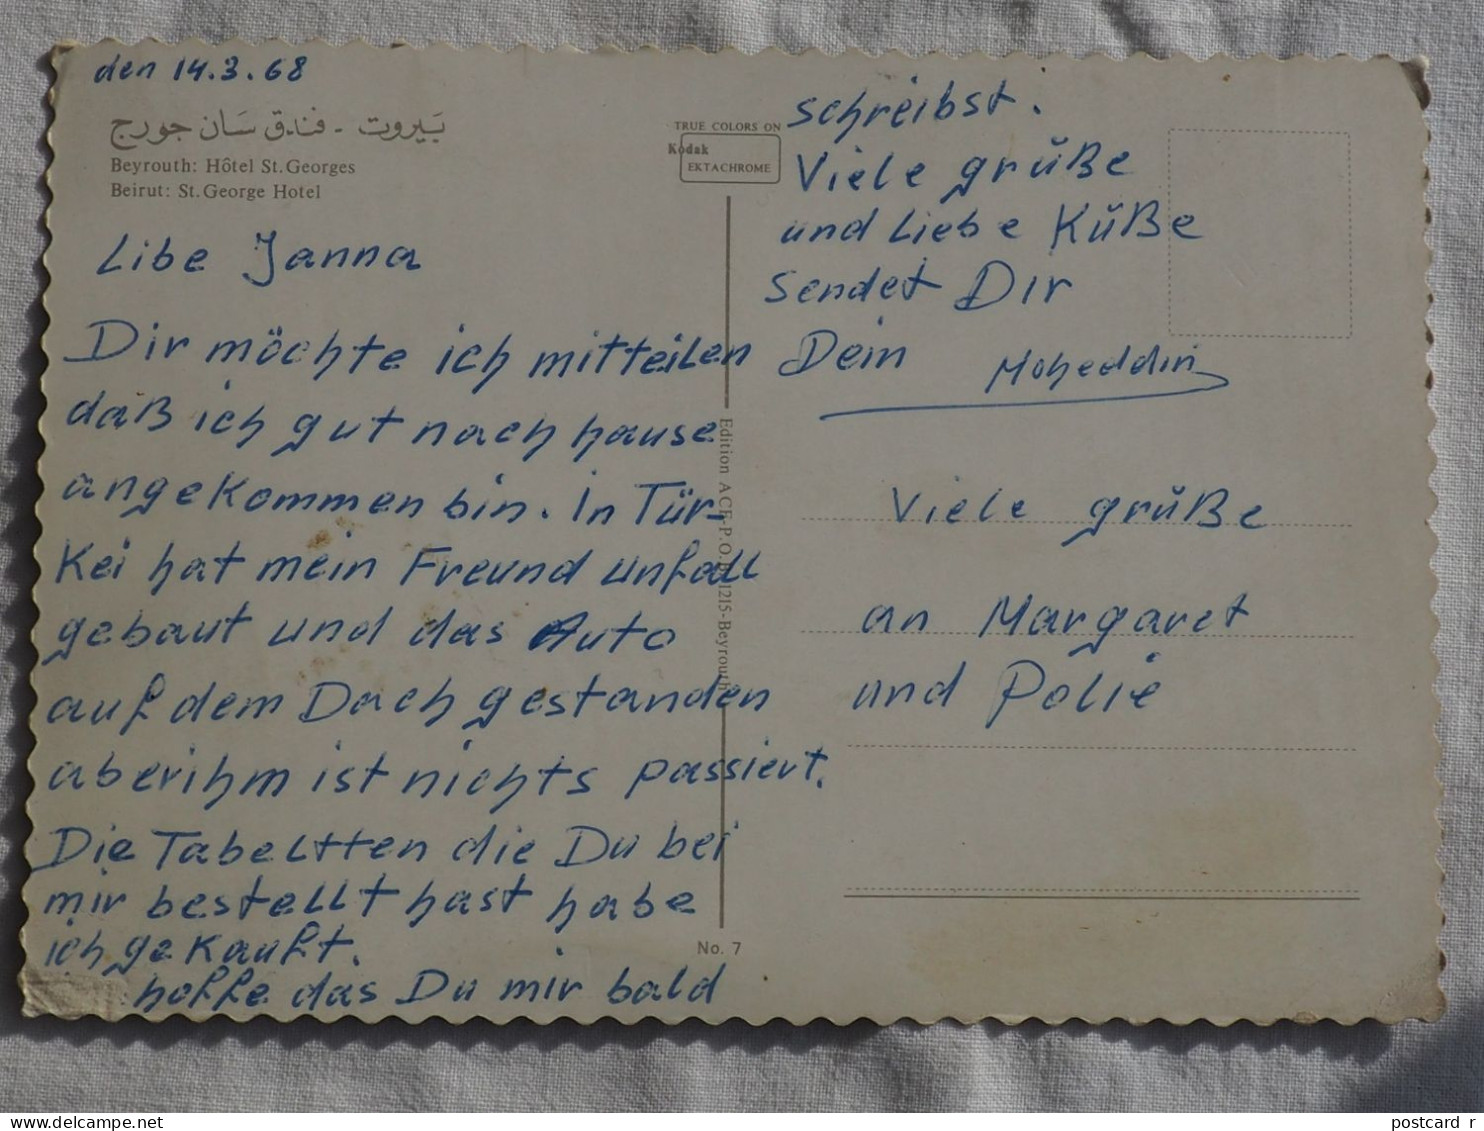 den 14.3.68
بَيروت - فندق سَان جورج
Beyrouth: Hôtel St. Georges
Beirut: St. George Hotel
Libe Janna
Dir möchte ich mitteilen
daß ich gut nach hause
angekommen bin. in Tür-
kei hat mein Freund unfall
gebaut und das Auto
auf dem Dach gestanden
aber ihm ist nichts passiert.
Die Tabeltten die Du bei
mir bestellt hast habe
ich gekauft.
hoffe das Du mir bald
TRUE COLORS ON
Kodak
EKTACHROME
Edition ACF-P.O.B. 1215-Beyrouth
No. 7
schreibst.
Viele grüße
und Liebe Küße
sendet Dir
Dein Moheddin
Viele grüße
an Margaret
und Polie
postcard r